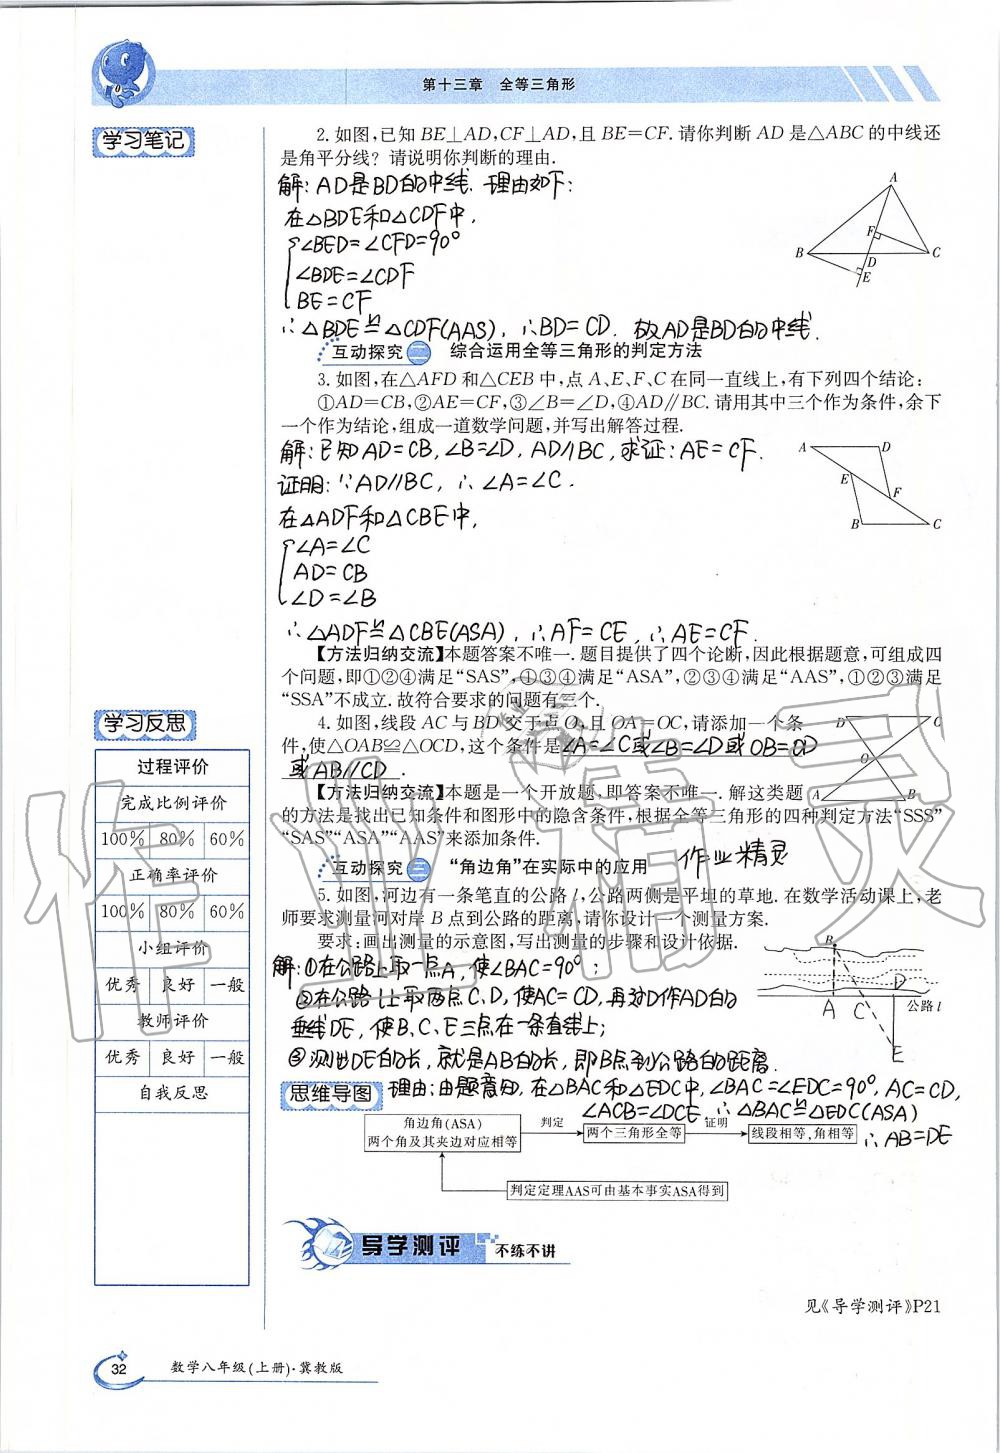 第十三章 全等三角形
学习笔记
2.如图,已知BE⊥AD,CF⊥AD,且BE=CF.请你判断AD是△ABC的中线还
是角平分线?请说明你判断的理由.
解:AD是BD的中线.理由如下:
在△BDE和△CDF中,
∠BED=∠CFD=90°
∠BDE=∠CDF
BE=CF
∴△BDE≌△CDF(AAS),∴BD=CD.故AD是BD的中线.
A
B
F
D
C
E
互动探究二 综合运用全等三角形的判定方法
3.如图,在△AFD和△CEB中,点A、E、F、C在同一直线上,有下列四个结论:
①AD=CB,②AE=CF,③∠B=∠D,④AD∥BC.请用其中三个作为条件,余下
一个作为结论,组成一道数学问题,并写出解答过程.
解:已知AD=CB,∠B=∠D,AD//BC,求证:AE=CF.
证明:∵AD//BC,∴∠A=∠C.
在△ADF和△CBE中,
∠A=∠C
AD=CB
∠D=∠B
∴△ADF≌△CBE(ASA),∴AF=CE,∴AE=CF.
A
D
E
F
B
C
【方法归纳交流】本题答案不唯一.题目提供了四个论断,因此根据题意,可组成四
个问题,即①②④满足“SAS”,①③④满足“ASA”,②③④满足“AAS”,①②③满足
“SSA”不成立.故符合要求的问题有三个.
4.如图,线段AC与BD交于点O,且OA=OC,请添加一个条
件,使△OAB≌△OCD,这个条件是∠A=∠C或∠B=∠D或OB=OD
或AB//CD.
D
C
O
A
B
【方法归纳交流】本题是一个开放题,即答案不唯一.解这类题
的方法是找出已知条件和图形中的隐含条件,根据全等三角形的四种判定方法“SSS”
“SAS”“ASA”“AAS”来添加条件.
互动探究三 “角边角”在实际中的应用
作业精灵
5.如图,河边有一条笔直的公路l,公路两侧是平坦的草地.在数学活动课上,老
师要求测量河对岸B点到公路的距离,请你设计一个测量方案.
要求:画出测量的示意图,写出测量的步骤和设计依据.
解:①在公路上取一点A,使∠BAC=90°;
②在公路l上取两点C、D,使AC=CD,再过D作AD的
垂线DE,使B、C、E三点在一条直线上;
③测出DE的长,就是AB的长,即B点到公路的距离.
理由:由题意知,在△BAC和△EDC中,∠BAC=∠EDC=90°,AC=CD,
∠ACB=∠DCE ∴△BAC≌△EDC(ASA)
∴AB=DE
B
A
C
D
E
公路l
学习反思
过程评价
完成比例评价
100% 80% 60%
正确率评价
100% 80% 60%
小组评价
优秀 良好 一般
教师评价
优秀 良好 一般
自我反思
思维导图
角边角(ASA)
两个角及其夹边对应相等
判定
两个三角形全等
证明
线段相等、角相等
判定定理AAS可由基本事实ASA得到
导学测评 不练不讲
见《导学测评》P21
32 数学八年级(上册)·冀教版
作业精灵